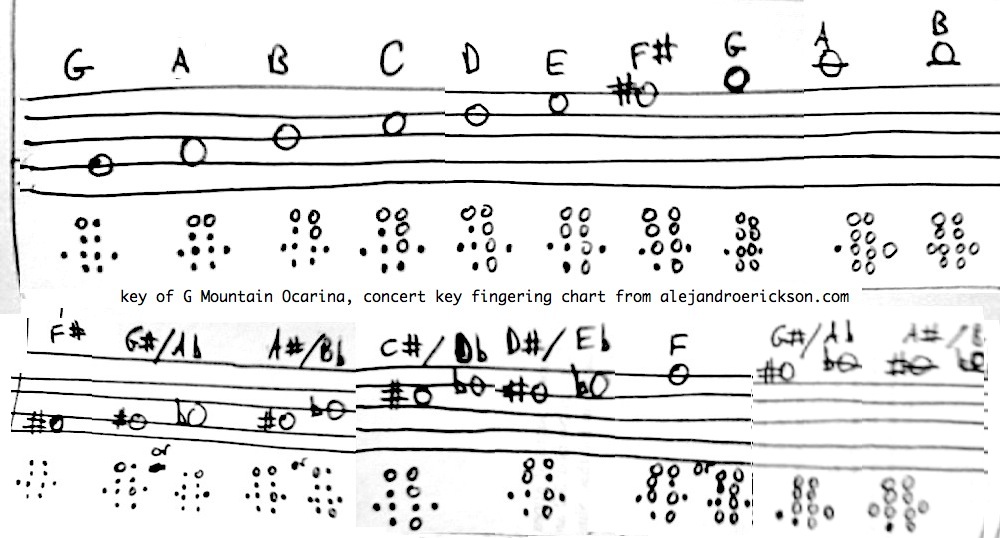 G A B C D E F# G A B
key of G Mountain Ocarina, concert key fingering chart from alejandroerickson.com
F# G#/Ab A#/Bb C#/Db D#/Eb F G#/Ab A#/B
# # b # b # b # b # b # b
or or or